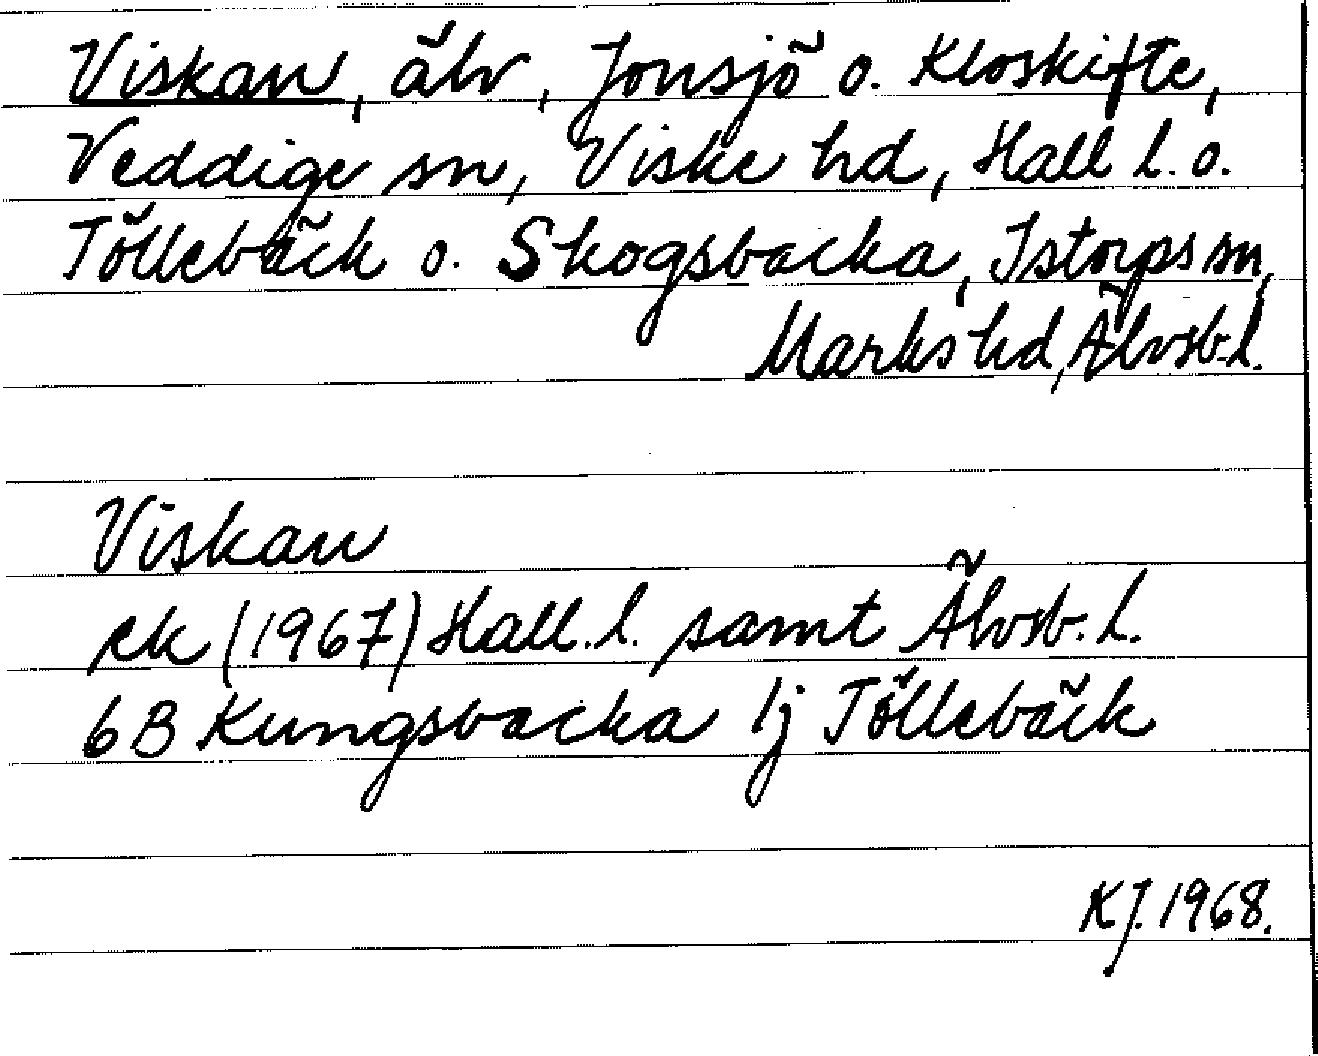 Viskan, älv, Jonsjö o. Kloskifte,
Veddige sn, Viske hd, Hall l. o.
Töllebäck o. Skogsbacka, Istorps sn,
Marks hd, Älvsb.l.
Viskan
ek (1967) Hall.l. samt Älvsb.l.
6B Kungsbacka 1j Töllebäck
KJ. 1968.